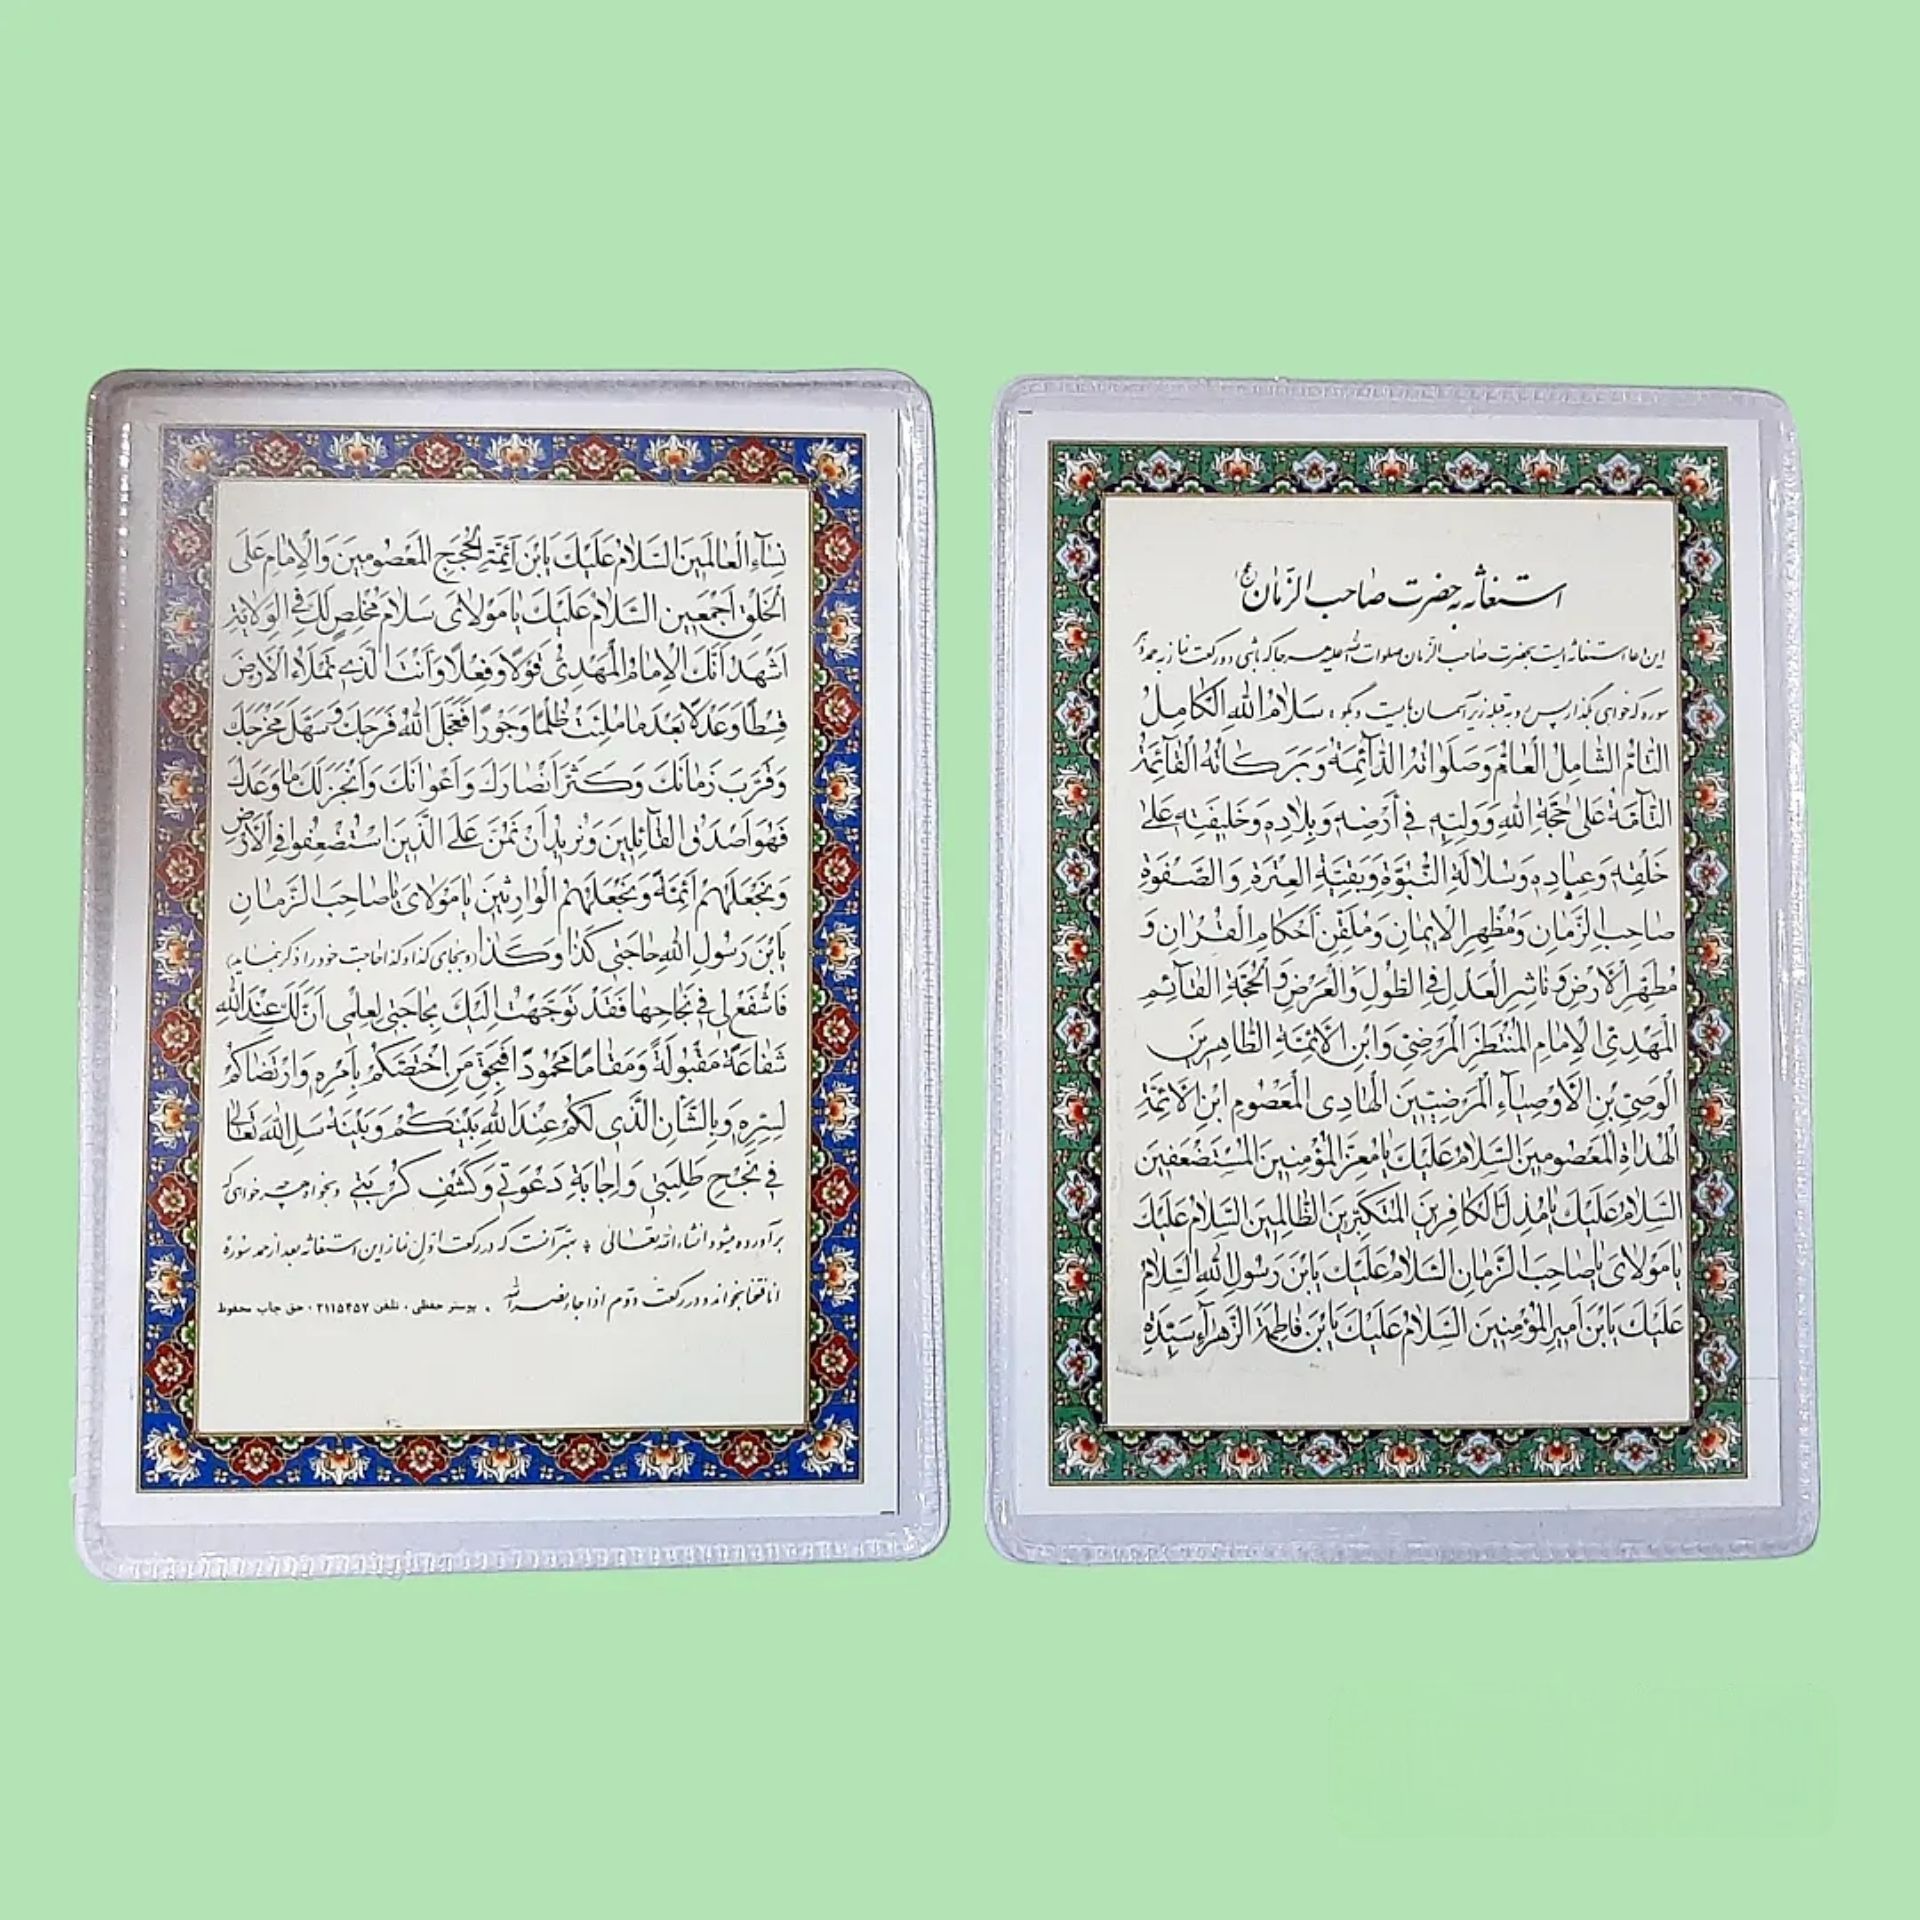 استغاثه به حضرت صاحب الزمان عج
این دعا استغاثه ایست بحضرت صاحب الزمان صلوات الله علیه هر جا که باشی دو رکعت نماز به حمد و هر
سوره که خواهی بگذار پس رو به قبله زیر آسمان بایست و بگو : سَلامُ اللهِ الْكامِلُ
التّامُّ الشّامِلُ الْعامُّ وَصَلَواتُهُ الدّآئِمَةُ وَبَرَكاتُهُ الْقآئِمَةُ
التّآمَّةُ عَلىٰ حُجَّةِ اللهِ وَوَلِيِّهِ فی أَرْضِهِ وَبِلادِهِ وَخَليفَتِهِ عَلىٰ
خَلْقِهِ وَعِبادِهِ وَسُلالَةِ النُّبُوَّةِ وَبَقِيَّةِ الْعِتْرَةِ وَالصَّفْوَةِ
صاحِبِ الزَّمانِ وَمُظْهِرِ الْايمانِ وَمُلَقِّنِ أَحْكامِ الْقُرْانِ وَ
مُطَهِّرِ الْأَرْضِ وَناشِرِ الْعَدْلِ فِی الطُّولِ وَالْعَرْضِ وَالْحُجَّةِ الْقآئِمِ
الْمَهْدِیِّ الْاِمامِ الْمُنْتَظَرِ الْمَرْضِیِّ وَابْنِ الْأَئِمَّةِ الطّاهِرينَ
الْوَصِیِّ بْنِ الْأَوْصِيآءِ الْمَرْضِيّينَ الْهادِی الْمَعْصُومِ ابْنِ الْأَئِمَّةِ
الْهُداةِ الْمَعْصُومينَ السَّلامُ عَلَيْكَ يا مُعِزَّ الْمُؤْمِنينَ الْمُسْتَضْعَفينَ
السَّلامُ عَلَيْكَ يا مُذِلَّ الْكافِرينَ الْمُتَكَبِّرينَ الظّالِمينَ السَّلامُ عَلَيْكَ
يا مَوْلایَ يا صاحِبَ الزَّمانِ السَّلامُ عَلَيْكَ يَا بْنَ رَسُولِ اللهِ السَّلامُ
عَلَيْكَ يَا بْنَ أَميرِ الْمُؤْمِنينَ السَّلامُ عَلَيْكَ يَا بْنَ فاطِمَةَ الزَّهْرآءِ سَيِّدَةِ
نِسآءِ الْعالَمينَ السَّلامُ عَلَيْكَ يَا بْنَ أَئِمَّةِ الْحُجَجِ الْمَعْصُومينَ وَالْاِمامِ عَلَى
الْخَلْقِ أَجْمَعينَ السَّلامُ عَلَيْكَ يا مَوْلایَ سَلامَ مُخْلِصٍ لَكَ فِی الْوَلايَةِ
أَشْهَدُ أَنَّكَ الْاِمامُ الْمَهْدِیُّ قَوْلاً وَفِعْلاً وَأَنْتَ الَّذی تَمْلَاءُ الْأَرْضَ
قِسْطاً وَعَدْلاً بَعْدَما مُلِئَتْ ظُلْماً وَجَوْراً فَعَجَّلَ اللهُ فَرَجَكَ وَسَهَّلَ مَخْرَجَكَ
وَقَرَّبَ زَمانَكَ وَكَثَّرَ أَنْصارَكَ وَأَعْوانَكَ وَأَنْجَزَ لَكَ ما وَعَدَكَ
فَهُوَ أَصْدَقُ الْقآئِلينَ وَنُريدُ أَنْ نَمُنَّ عَلَى الَّذينَ اسْتُضْعِفُوا فِی الْأَرْضِ
وَنَجْعَلَهُمْ أَئِمَّةً وَنَجْعَلَهُمُ الْوارِثينَ يا مَوْلایَ يا صاحِبَ الزَّمانِ
يَا بْنَ رَسُولِ اللهِ حاجَتی كَذا وَكَذا (و بجای کذا و کذا حاجت خود را ذکر نماید)
فَاشْفَعْ لی فی نَجاحِها فَقَدْ تَوَجَّهْتُ اِلَيْكَ بِحاجَتی لِعِلْمی أَنَّ لَكَ عِنْدَ اللهِ
شَفاعَةً مَقْبُولَةً وَمَقاماً مَحْمُوداً فَبِحَقِّ مَنِ اخْتَصَّكُمْ بِأَمْرِهِ وَارْتَضاكُمْ
لِسِرِّهِ وَبِالشَّأْنِ الَّذی لَكُمْ عِنْدَ اللهِ بَيْنَكُمْ وَبَيْنَهُ سَلِ اللهَ تَعالىٰ
فی نُجْحِ طَلِبَتی وَاِجابَةِ دَعْوَتی وَكَشْفِ كُرْبَتی و بخواه هر چه خواهی که
برآورده میشود انشاءالله تعالی * بهتر آنست که در رکعت اول نماز این استغاثه بعد از حمد سورۀ
انا فتحنا بخواند و در رکعت دوم اذا جاء نصر الله . پوستر حفظی ، تلفن ۳۱۱۵۴۵۷ ، حق چاپ محفوظ